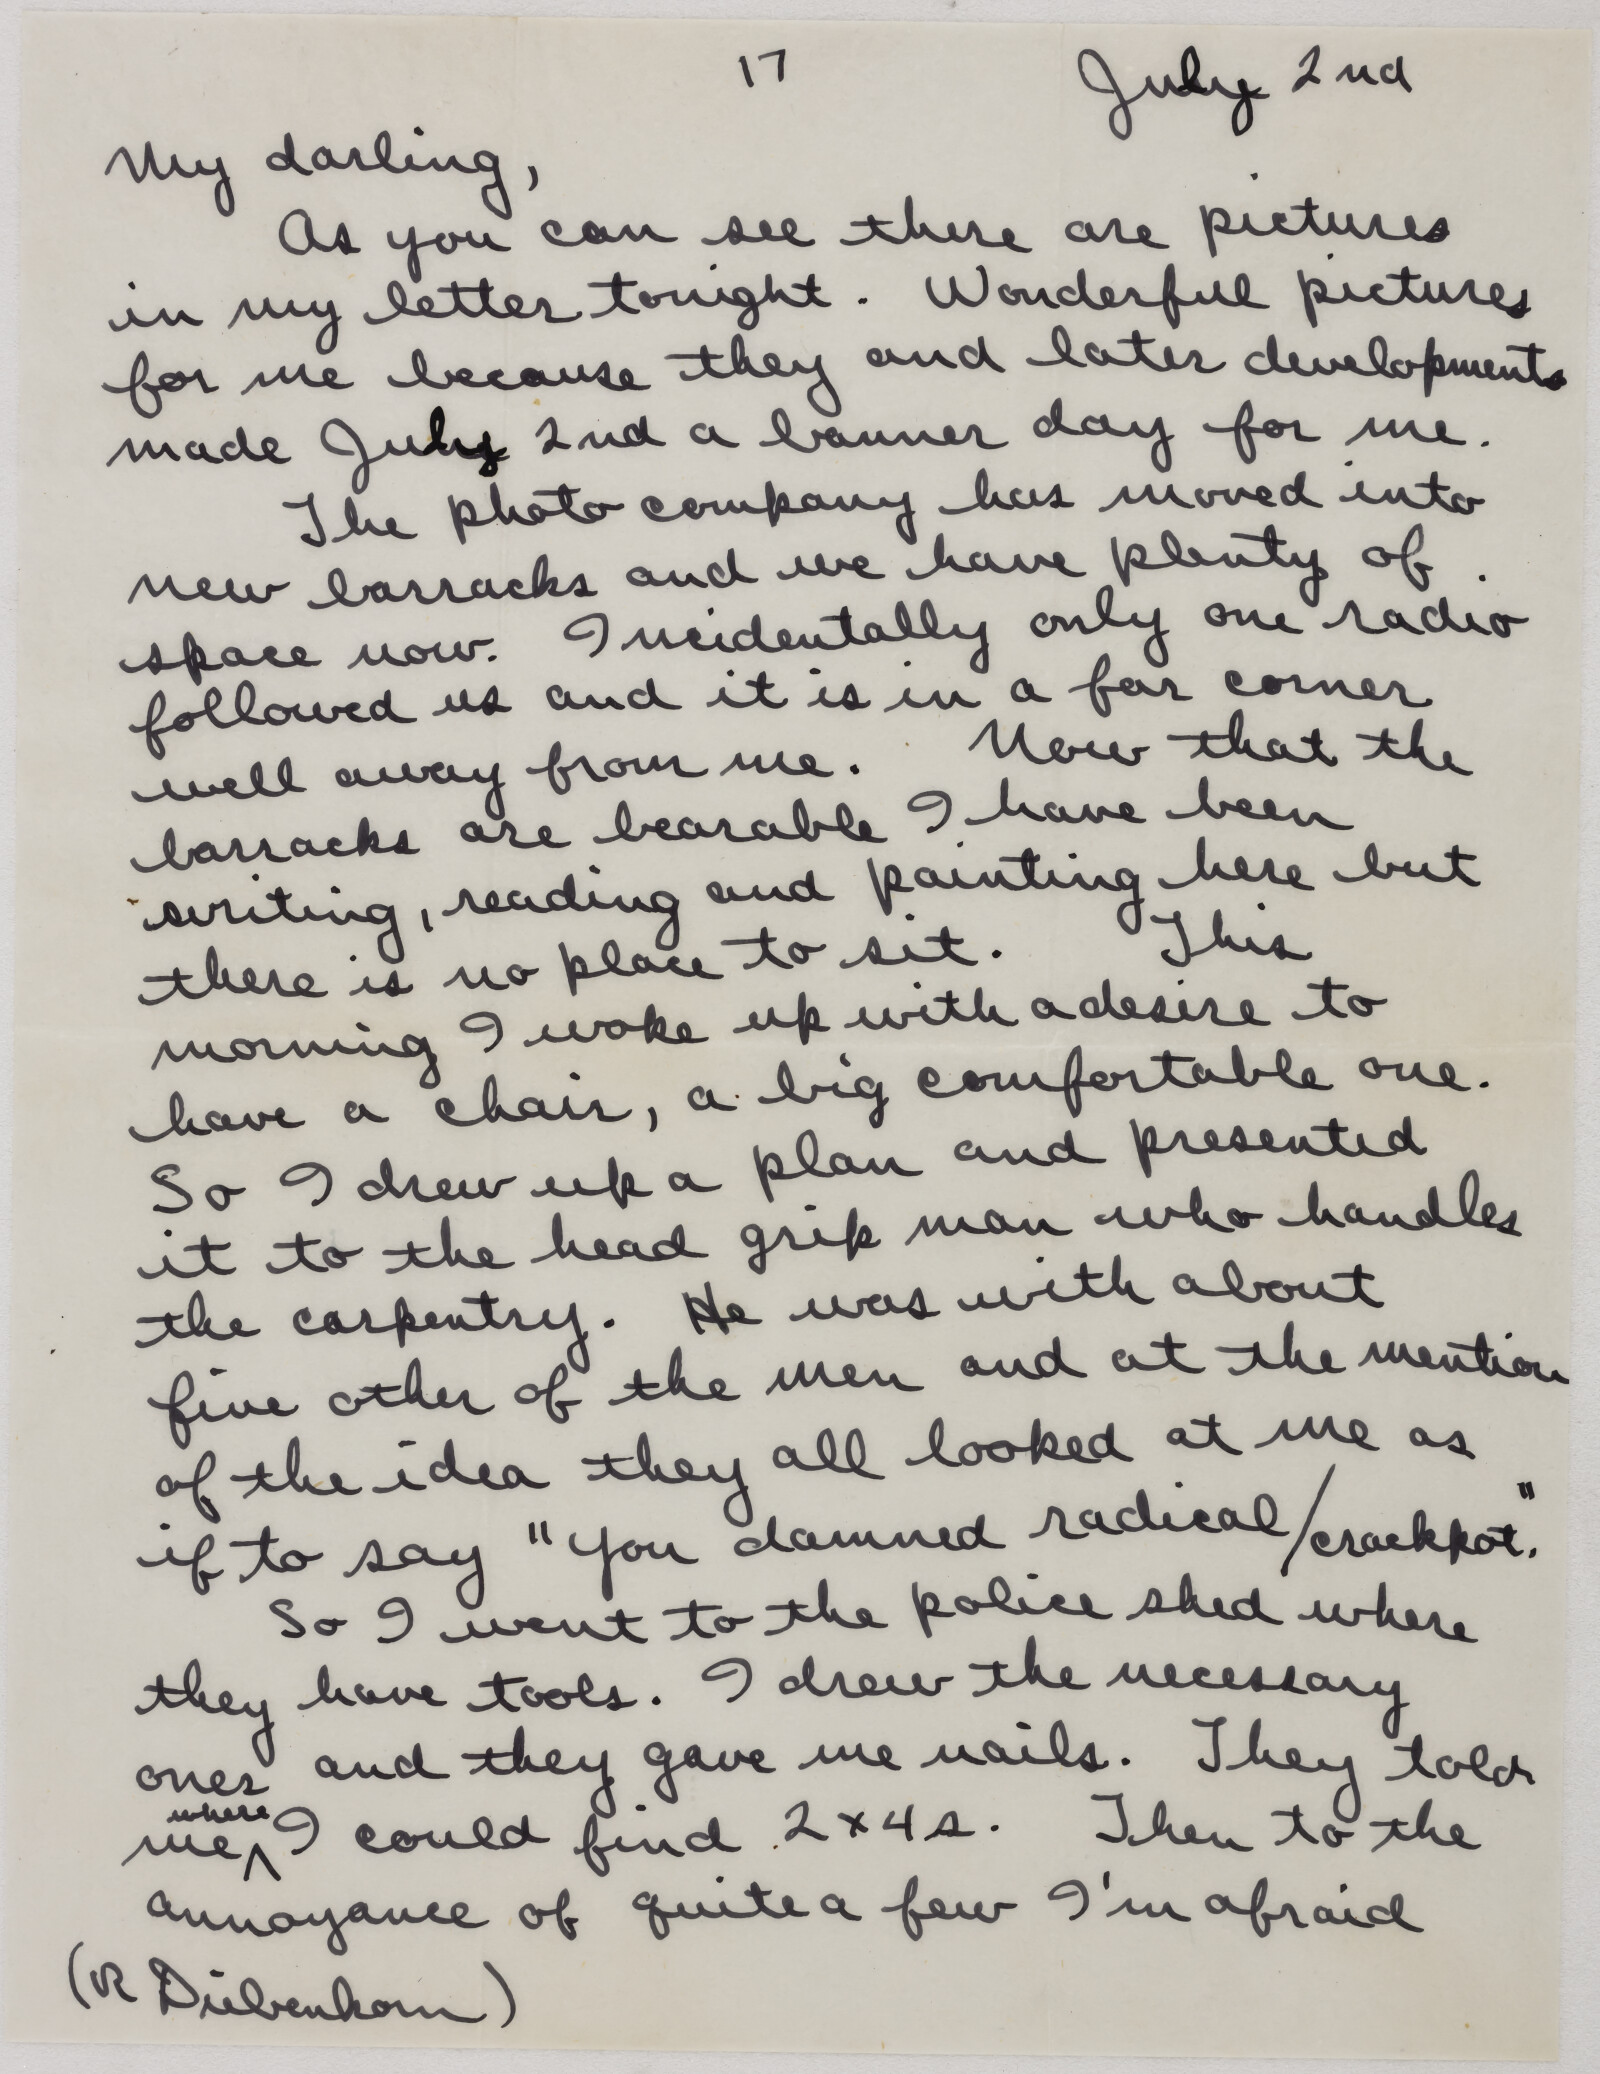 17 July 2nd
My darling,
As you can see there are pictures
in my letter tonight. Wonderful pictures
for me because they and later developments
made July 2nd a banner day for me.
The photo company has moved into
new barracks and we have plenty of
space now. Incidentally only one radio
followed us and it is in a far corner
well away from me. Now that the
barracks are bearable I have been
writing, reading and painting here but
there is no place to sit. This
morning I woke up with a desire to
have a chair, a big comfortable one.
So I drew up a plan and presented
it to the head grip man who handles
the carpentry. He was with about
five other of the men and at the mention
of the idea they all looked at me as
if to say "you damned radical/crackpot."
So I went to the police shed where
they have tools. I drew the necessary
ones and they gave me nails. They told
where
me ^ I could find 2x4s. Then to the
annoyance of quite a few I'm afraid
(R Diebenkorn)